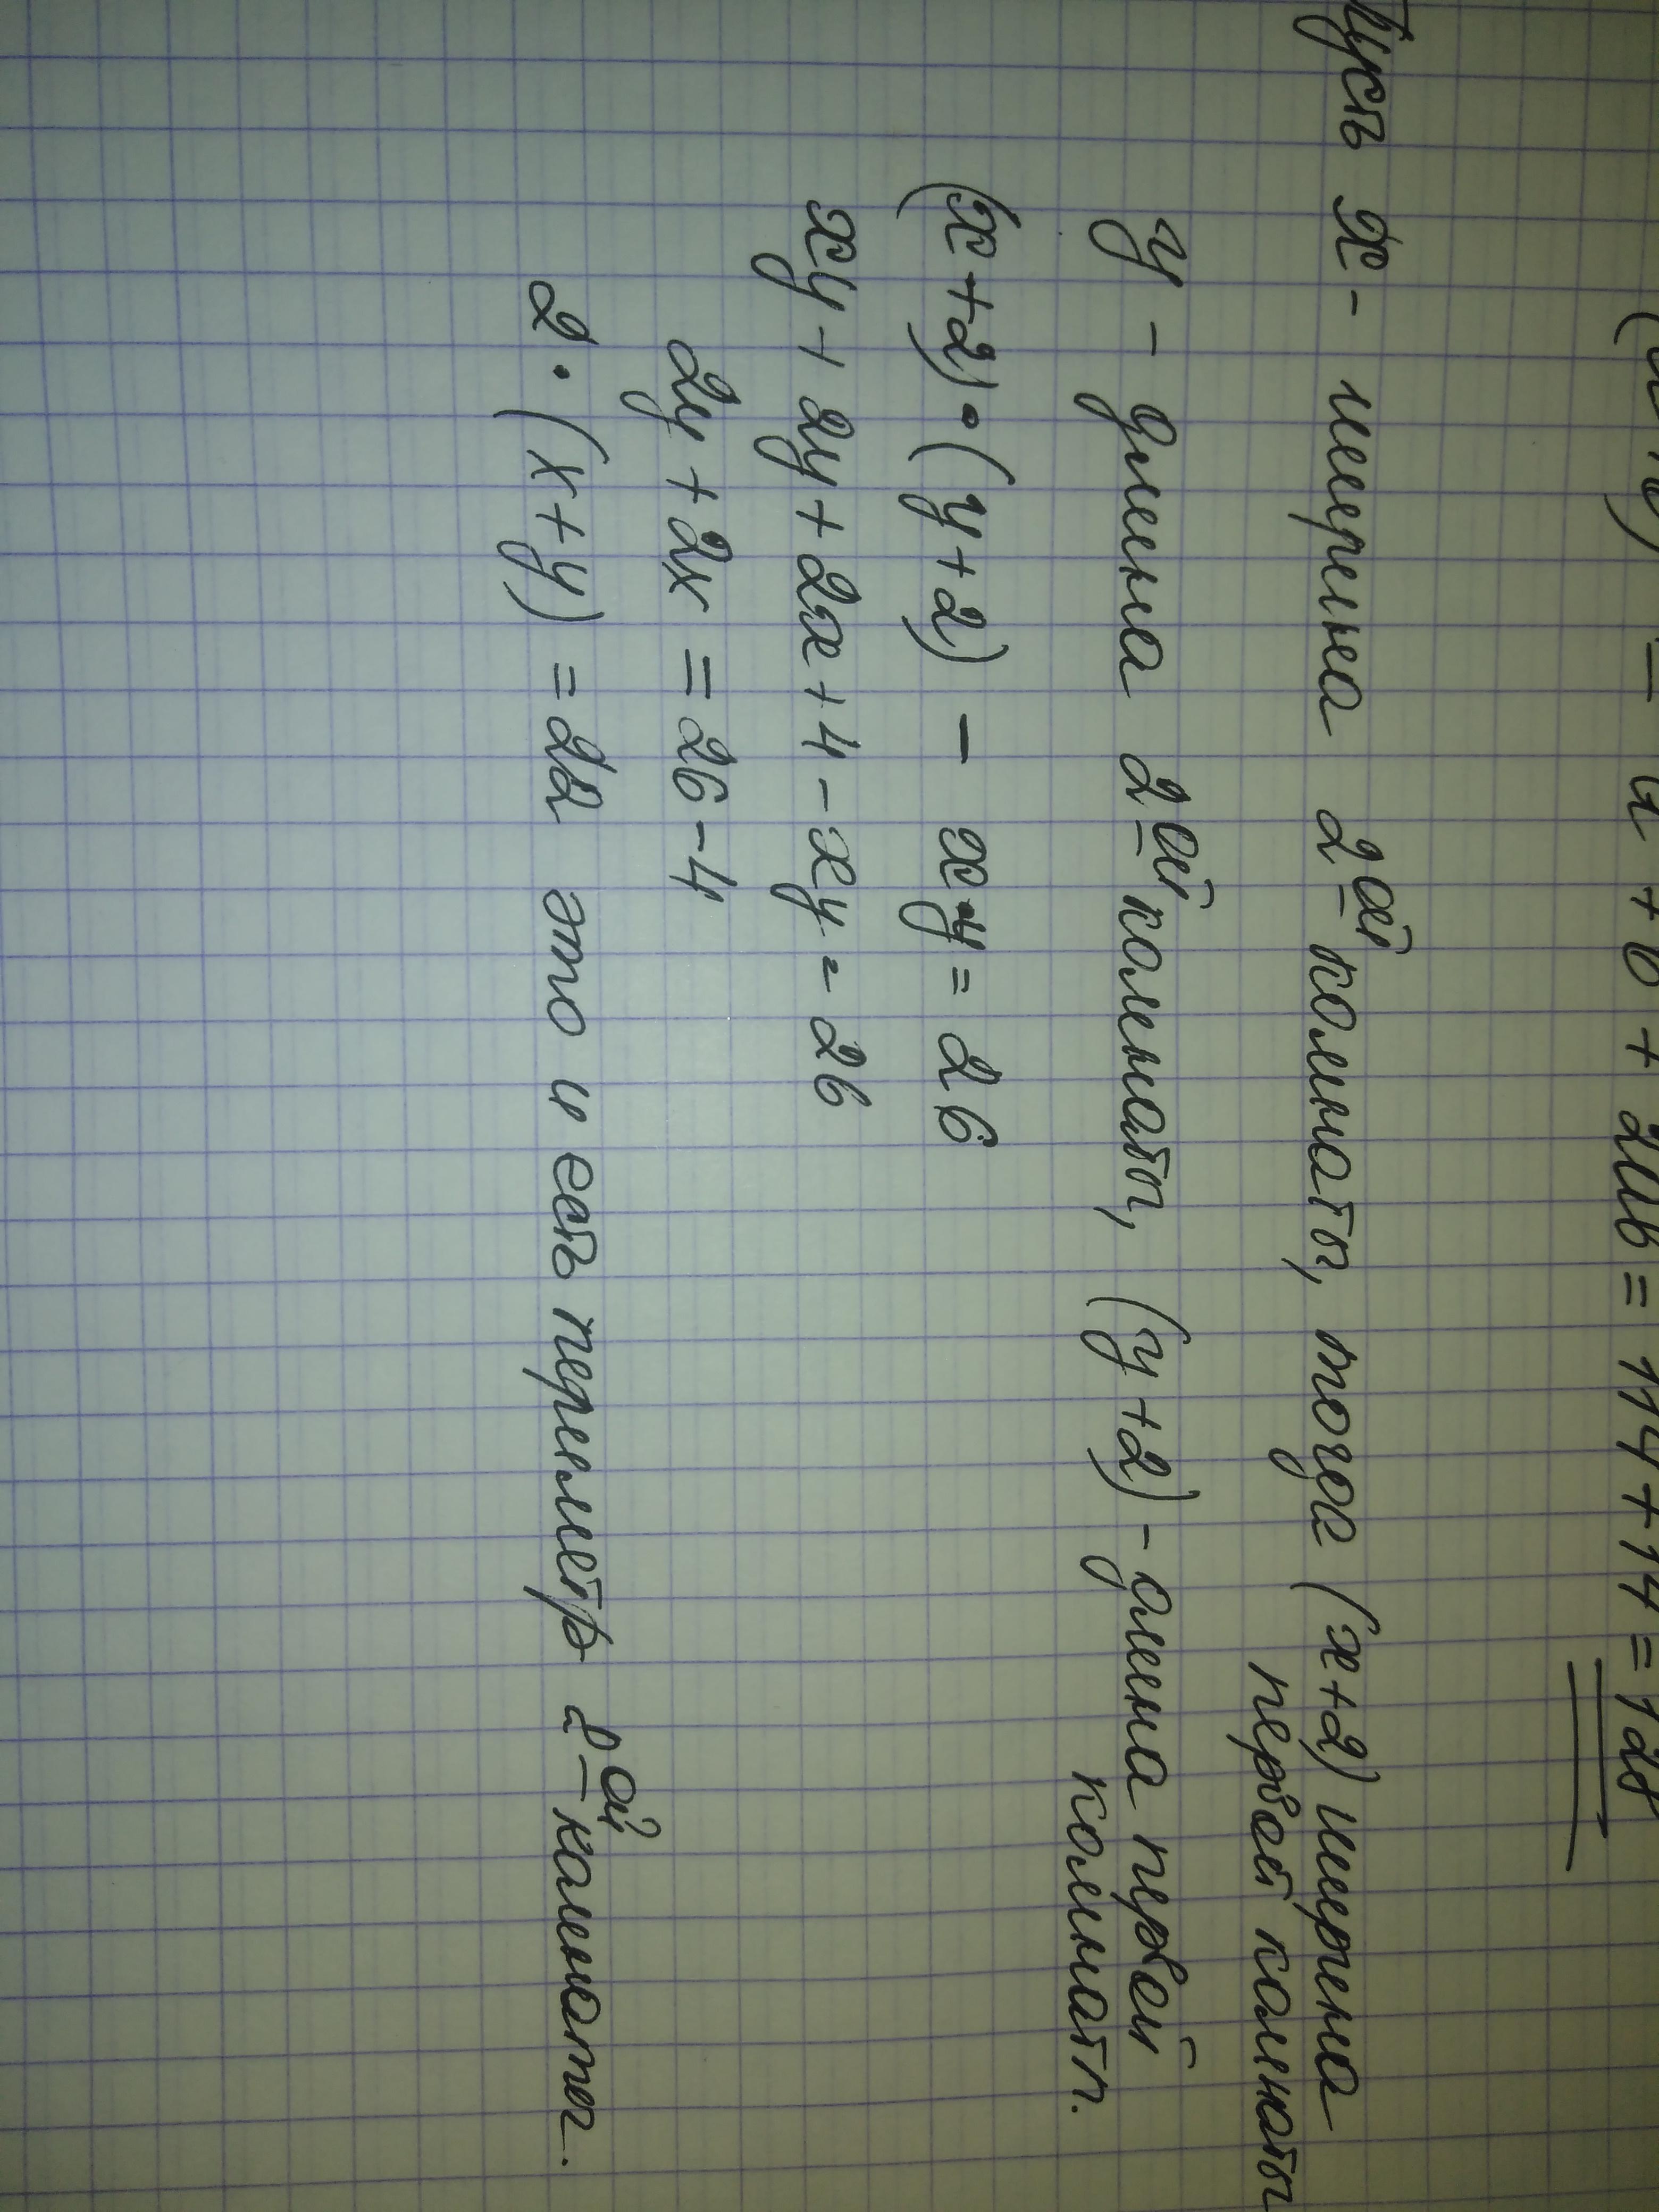 = a + b + 2ab = 114 + 14 = 128
Пусть x - ширина 2-ой комнаты, тогда (x+2) ширина
первой комнаты
y - длинна 2-ой комнаты, (y+2) - длинна первой
комнаты.
(x+2)·(y+2) - xy = 26
xy + 2y + 2x + 4 - xy = 26
2y + 2x = 26 - 4
2·(x+y) = 22 это и есть периметр 2-ой комнаты.